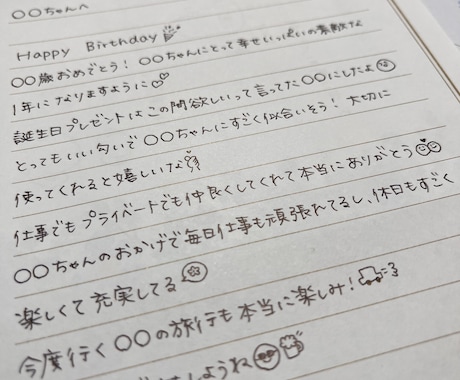 〇〇ちゃんへ
Happy Birthday
〇〇歳おめでとう! 〇〇ちゃんにとって幸せいっぱいの素敵な
1年になりますように♡
誕生日プレゼントはこの間欲しいって言ってた〇〇にしたよ
とってもいい匂いで〇〇ちゃんにすごく似合いそう! 大切に
使ってくれると嬉しいな
仕事でもプライベートでも仲良くしてくれて本当にありがとう
〇〇ちゃんのおかげで毎日仕事も頑張れてるし、休日もすごく
楽しくて充実してる
今度行く〇〇の旅行も本当に楽しみ!
しようね